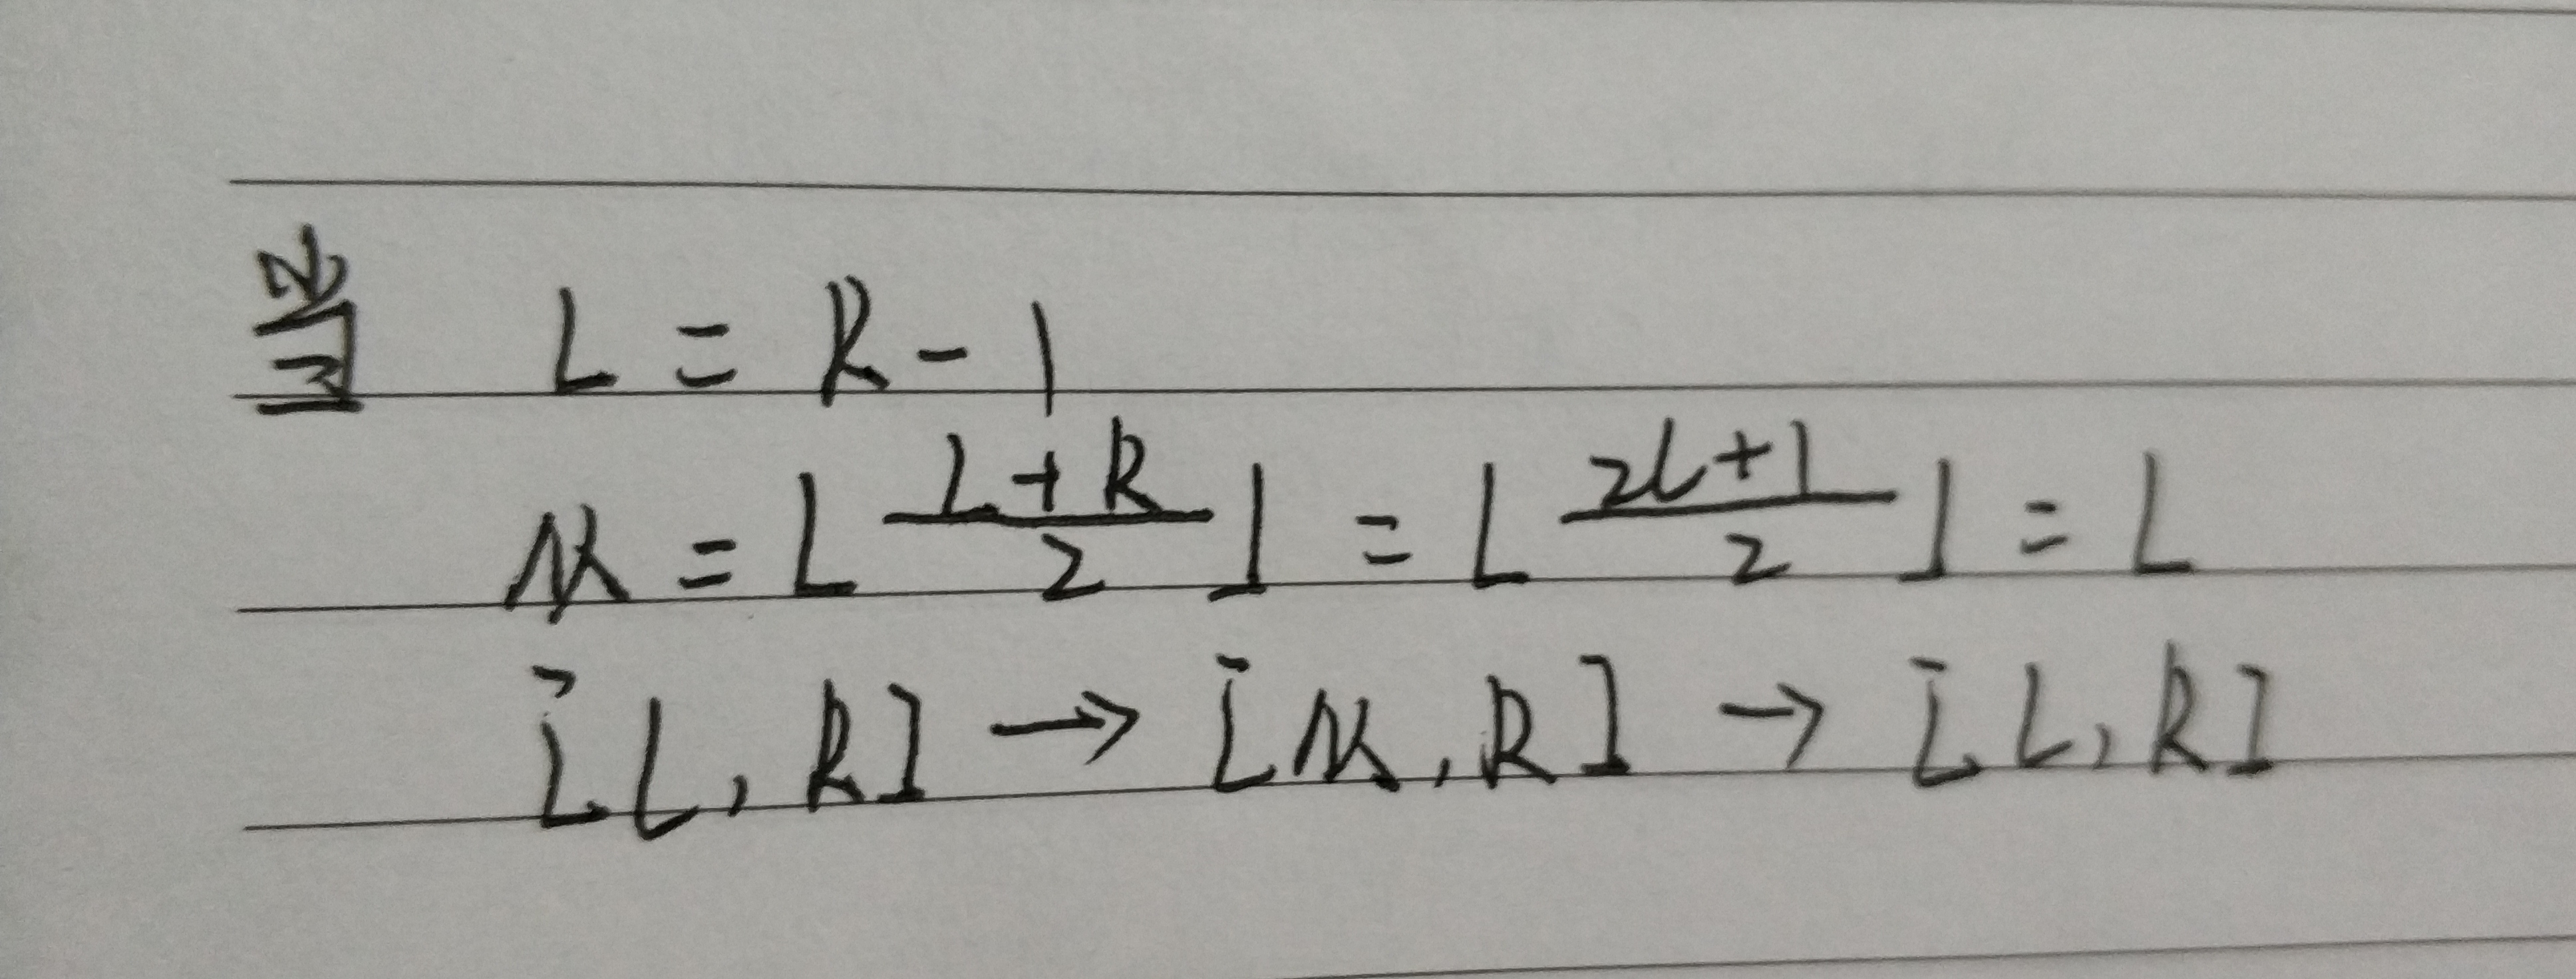 当 L = R - 1
M = ⌊ (L + R)/2 ⌋ = ⌊ (2L + 1)/2 ⌋ = L
[L, R] → [M, R] → [L, R]